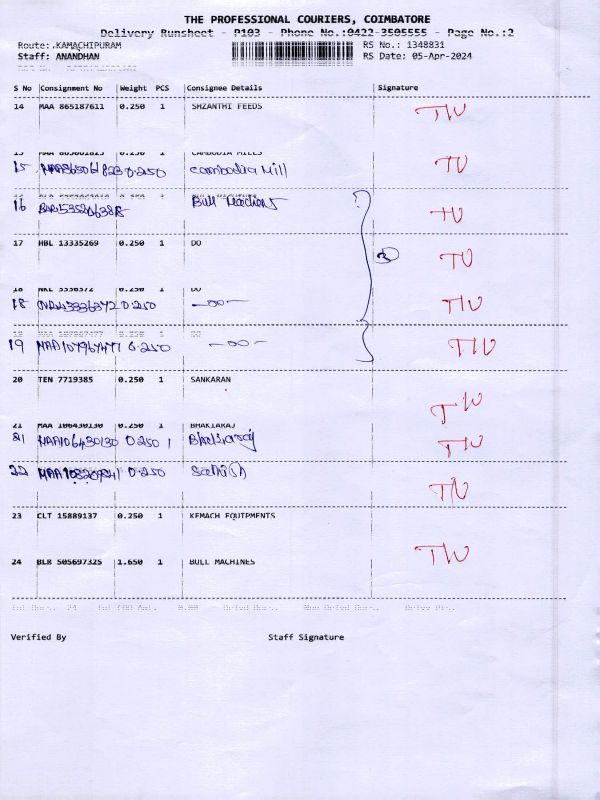 THE PROFESSIONAL COURIERS, COIMBATORE
Delivery Runsheet - P103 - Phone No.:0422-3505555 - Page No.:2
Route: .KAMACHIPURAM RS No.: 1348831
Staff: ANANDHAN RS Date: 05-Apr-2024
S No Consignment No Weight PCS Consignee Details Signature
14 MAA 865187611 0.250 1 SHZANTHI FEEDS TW
15 MAA 865061823 0.250 1 CAMBODIA MILLS
15 MAA865061823 0.250 Cambodia Mill TW
16 Bull Machines TW
17 HBL 13335269 0.250 1 DO 3 TW
18 NKL 3336372 0.250 1 DO
18 0.250 -DO- TW
19 MAA107967477 0.250 -DO- TW
20 TEN 7719385 0.250 1 SANKARAN TW
21 MAA 106430130 0.250 1 BHAKIARAJ
21 MAA106430130 0.250 1 Bhakiaraj TW
22 0.250 TW
23 CLT 15889137 0.250 1 KEMACH EQUIPMENTS
24 BLR 505697325 1.650 1 BULL MACHINES TW
Verified By Staff Signature